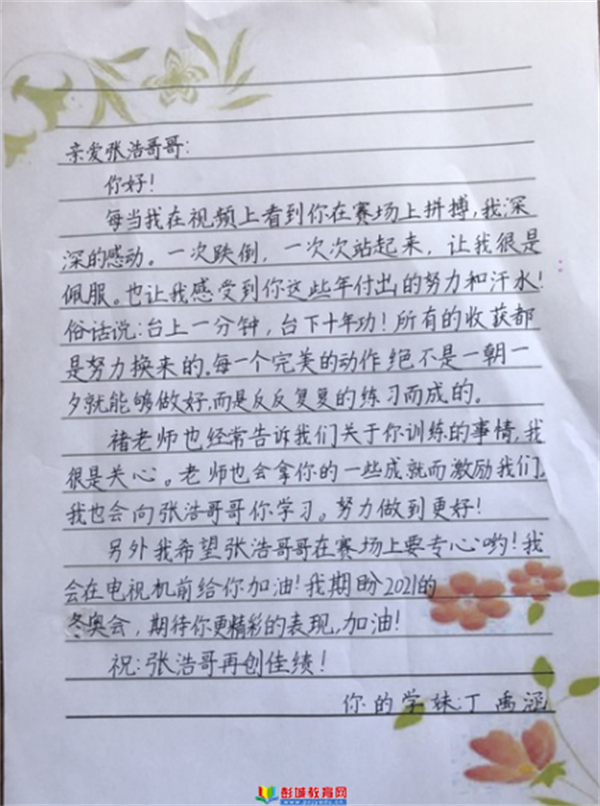 亲爱张浩哥哥:
你好!
每当我在视频上看到你在赛场上拼搏,我深
深的感动。一次跌倒,一次次站起来,让我很是
佩服。也让我感受到你这些年付出的努力和汗水!
俗话说:台上一分钟,台下十年功!所有的收获都
是努力换来的。每一个完美的动作绝不是一朝一
夕就能够做好,而是反反复复的练习而成的。
褚老师也经常告诉我们关于你训练的事情,我
很是关心。老师也会拿你的一些成就而激励我们,
我也会向张浩哥哥你学习。努力做到更好!
另外我希望张浩哥哥在赛场上要专心哟!我
会在电视机前给你加油!我期盼2021的
冬奥会,期待你更精彩的表现,加油!
祝:张浩哥再创佳绩!
你的学妹:丁禹涵
彭城教育网